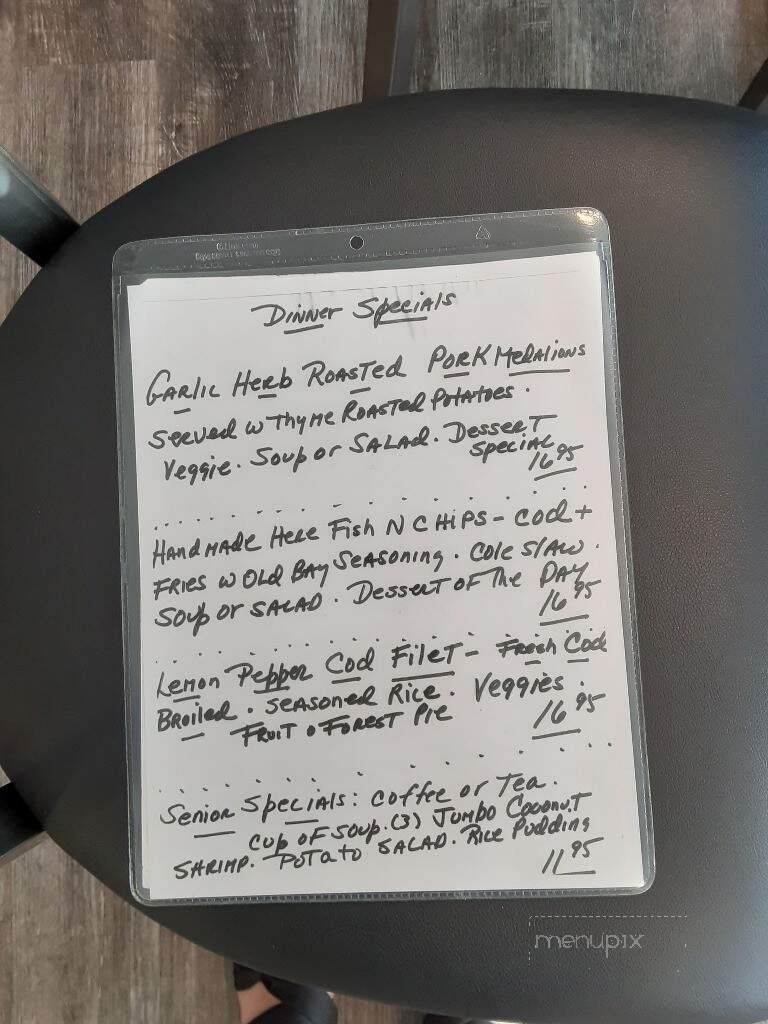 Dinner Specials
GARLIC HERB ROASTED PORK MEDALIONS
SERVED W THYME ROASTED POTATOES.
VEGGIE. SOUP OR SALAD. DESSERT
SPECIAL
16.95
HANDMADE HERE FISH N CHIPS - COD +
FRIES W OLD BAY SEASONING. COLE SLAW.
SOUP OR SALAD. DESSERT OF THE DAY
16.95
LEMON PEPPER COD FILET - FRESH COD
BROILED. SEASONED RICE. VEGGIES.
FRUIT O FOREST PIE
16.95
SENIOR SPECIALS: COFFEE OR TEA.
CUP OF SOUP. (3) JUMBO COCONUT
SHRIMP. POTATO SALAD. RICE PUDDING
11.95
menupix